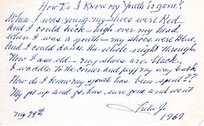 How Do I Know my Youth is gone?
When I was young, my shoes were Red
And I could kick high over my head
When I was a youth - my shoes were blue,
And I could dance the whole night through
Now I am old - my shoes are black,
I waddle to the corner and puff my way back
How do I know my youth has been spent??
My get up and go, has sure gone and went
Lulu J.
My 79th
1969